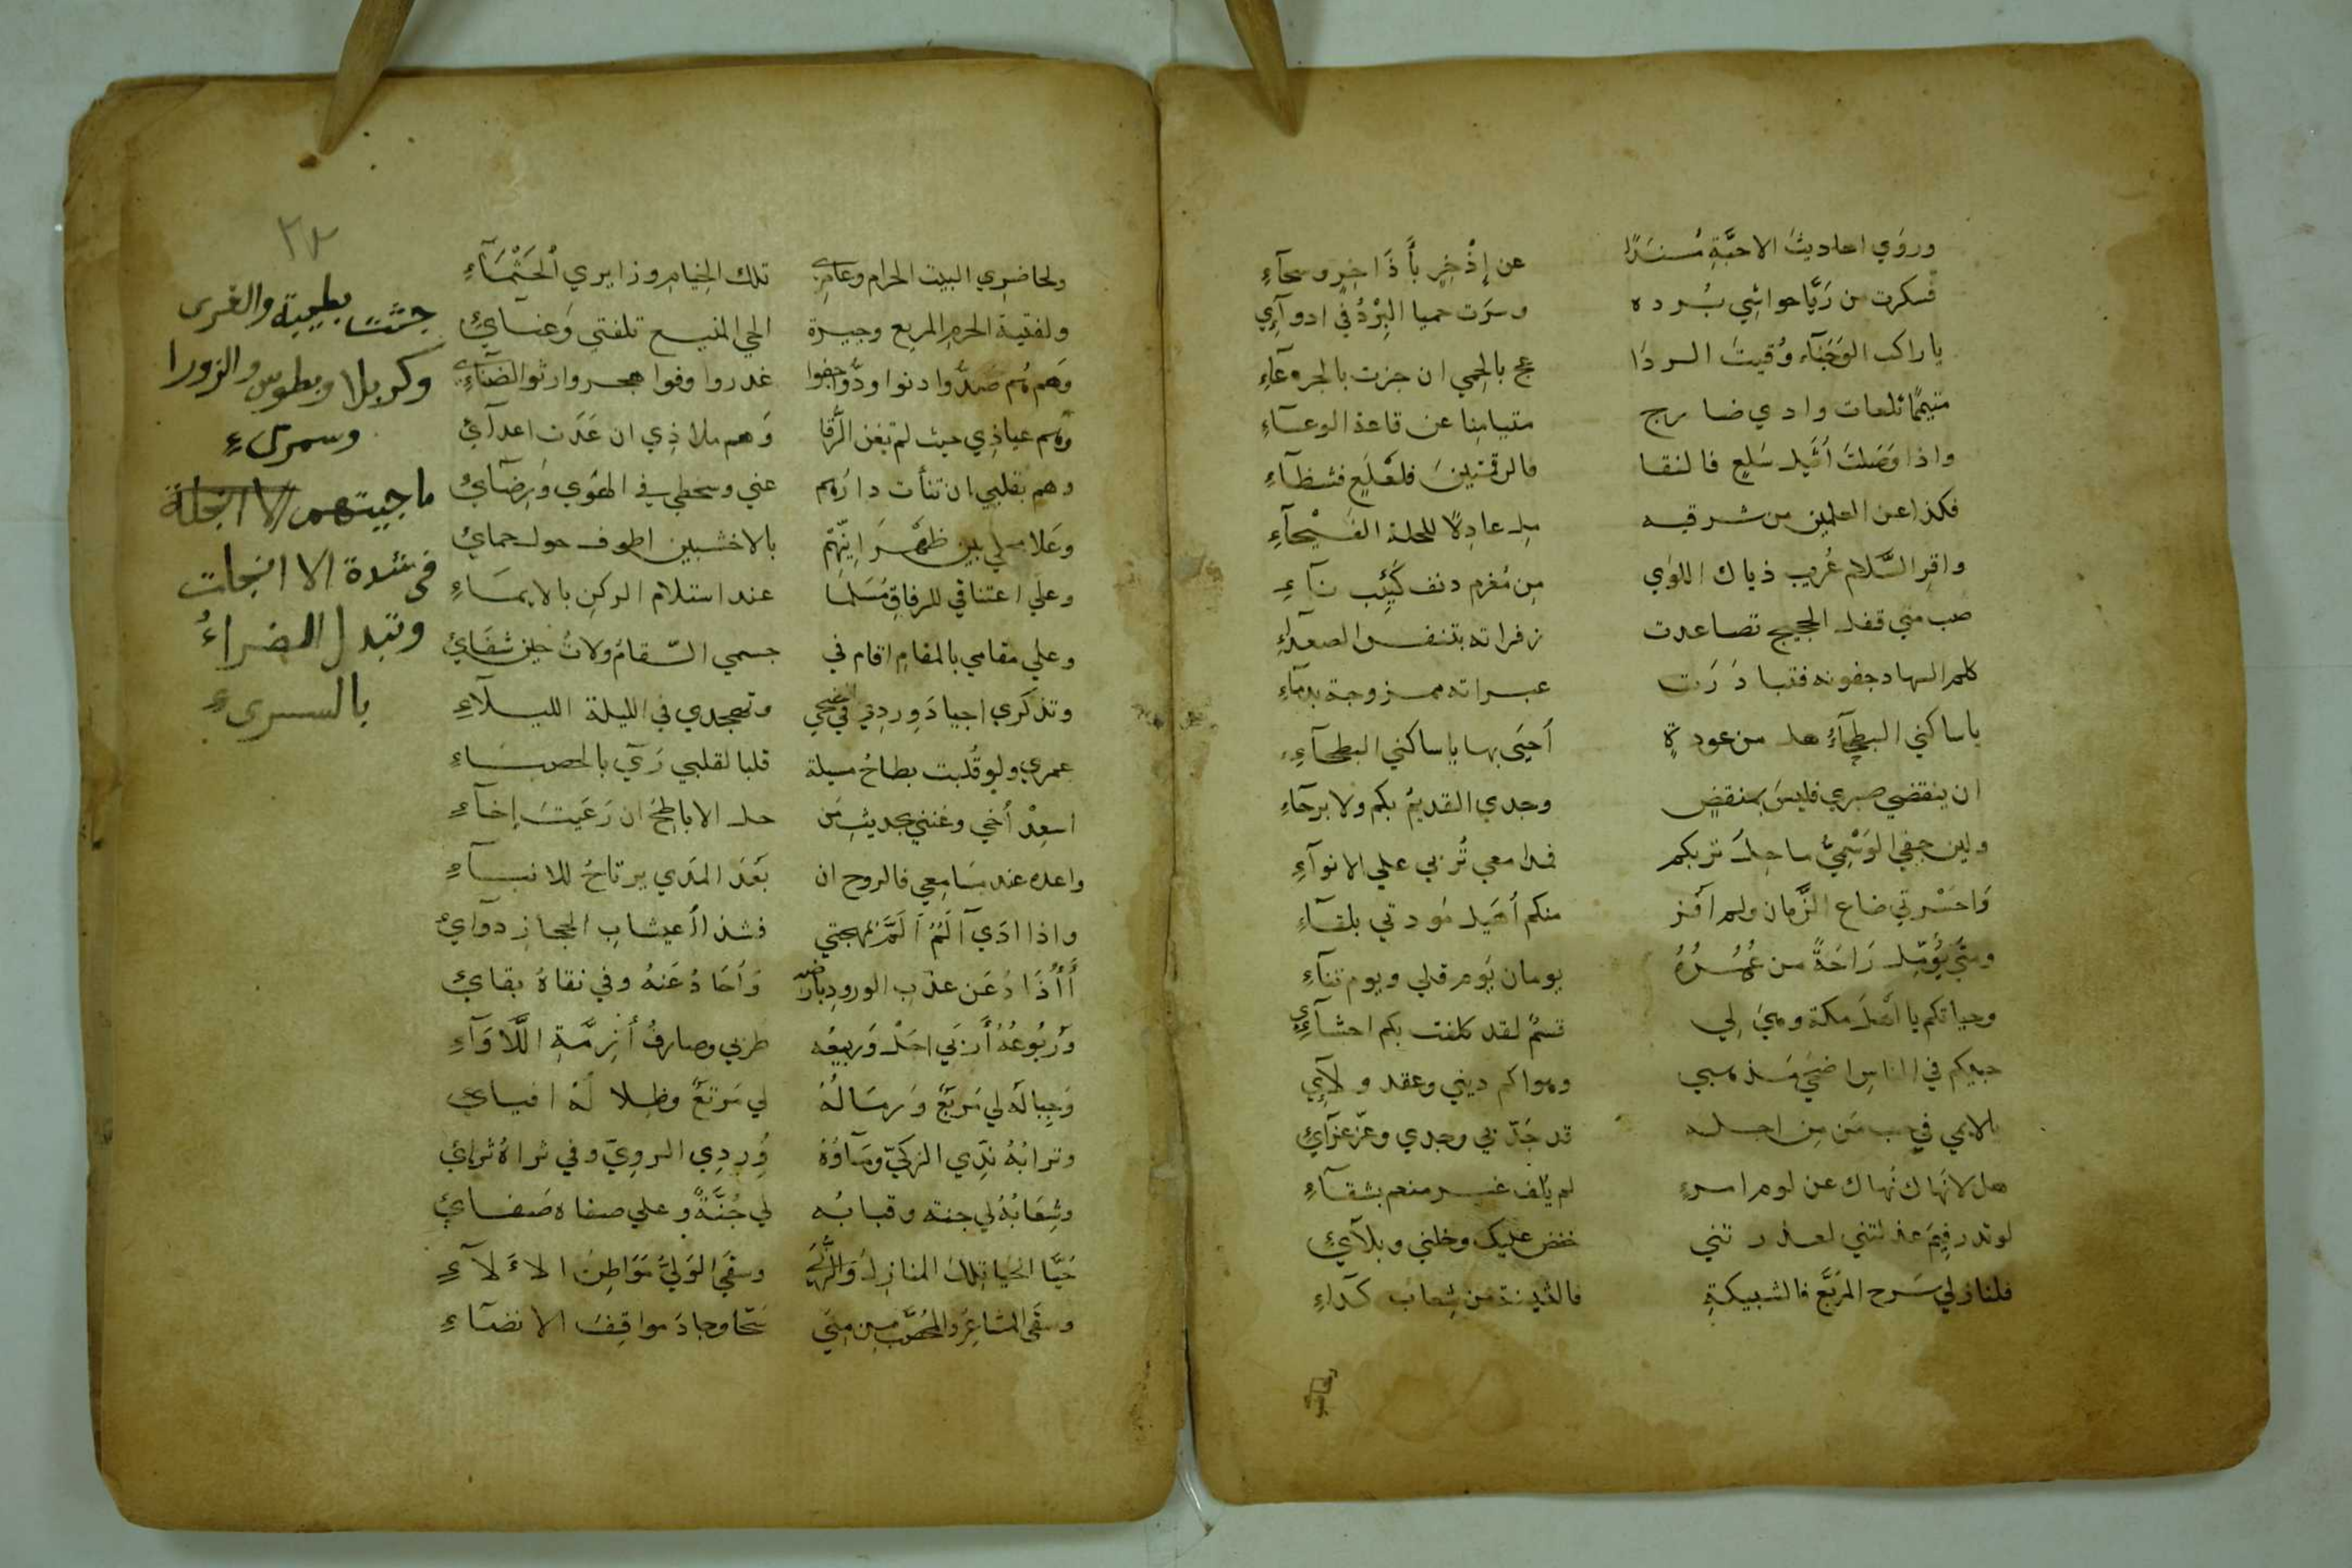 وروَي احاديثَ الاحبَّةِ مُسنَدًا عن إِذْخِرٍ بأَذَاخِرٍ وسحآءِ
فسكرت من رَيَّا حواشِي بُرده وسَرَت حميا البِرْدُ في ادوآءِي
يا راكب الوَجَنآء وُقيتَ الردَا عج بالحِمي ان جزت بالجرعآءِ
متيمًا تلعات وادي ضارج متيامِنا عن قاعة الوعسآءِ
واذا وَصَلتَ اُثَيل سَلعٍ فالنقا فالرقمتينَ فلَعْلَعٍ فشظآءِ
فكذا عن العلمين من شرقيه مِل عادِلًا للحلة الفَيْحآءِ
واقرِ السَّلام عُريب ذياك اللوَي مِن مُغرمٍ دنف كئِيب نآءِ
صب متي قفل الحجيج تصاعدت زفراته بتنفس الصعدآءِ
كلم السهاد جفونه فتبادَرَت عبراته ممزوجة بدمآءِ
يا ساكني البطحآءِ هل من عودةٍ أحيَى بها يا ساكني البطحآءِ
ان ينقضي صبري فليسَ بمنقضٍ وجدي القديمُ بكم ولا برحآءِ
ولين جفي الوَسْمِيُّ ماحِلَ تربكم فمدامعي تُربي علي الانوآءِ
وَاحَسْرتي ضاع الزَّمان ولم اَفز منكم أُهَيل مَودتي بلقآءِ
ومتَي يُؤَمِّل رَاحَةً من عُمْرُهُ يومان يَوم قلي ويوم تنآءِ
وحياتكم يا أهْلَ مكة وهيَ لِي قسَمٌ لقد كلفت بكم احشآءِي
حبيكم في الناسِ اضحَي مَذهبي وهواكم ديني وعقد ولآءِي
يالايمي في حب مَن مِن اجله قد جَدّ بي وجدي وعَز عزآئِ
هل لانَهاك نُهاك عن لوم امرءٍ لم يُلف غير منعم بشقآءِ
لو تدر فِيمَ عذلتني لعذرتني خفض عليك وخلني وبلآئِ
فلنازلي سَرح المرَبَّع فالشبيكةِ فالثنية من شِعاب كدآءِ
ولحاضِري البيت الحرام وعامِرِي تلك الخِيامِ وزايري الحَثْمَآءِ
ولفتية الحرمِ المريع وجيرة الحي المنيع تلفتي وَعنآئِ
وَهم هُم صَدُّوا دنوا ودُّوا جفوا غدروا وفوا هجروا رثوا لضنآءِي
وَهم عياذِي حيث لم تغن الرُّقا وَهم ملاذِي ان غَدَت اعدآئِ
وهم بقلبي ان تنأت دارُهم عني وسخطي في الهَوي وَرِضآئِ
وعَلا محلي بين ظَهْرَانِيّهِم بالاخشبين اطوف حول حمائِ
وعلي اعتناقي للرفاقِ مُسَلمًا عند استلام الركنِ بالايمَاءِ
وعلي مقامي بالمقامِ اقام في جسمي السّقامُ ولاتَ حين شفَائِ
وتذكري اجيادَ وِردِي في الضحي وتهجدي في الليلة الليلآءِ
عمري ولو قُلبت بطاحُ مسيلة قلبا لقلبي رَيّ بالحصبآءِ
اسعِدْ أخي وغنني بحديثِ مَن حل الاباطِحَ ان رَعَيتَ إخآءِ
واعده عند مَسَامِعي فالروح ان بَعُدَ المَدَي يرتاحُ للانبآءِ
واذا اذَي اَلَمٌ اَلَمَّ بمهجتي فشذا اُعيشابِ الحجازِ دوآئِ
أَأُذَادُ عَن عذبِ الورودِ بارضه وَاَحَادُ عَنهُ وفي نقاهُ بقائِ
وَرُبُوعُهُ أَرَبي اجَل وَربيعُه طربي وصارفُ أزِمَّةِ اللَّاوَآءِ
وَجِبالُه لي مَربَعٌ وَرِمَالُهُ لي مَرتعٌ وظِلالُهُ افيائِ
وترابُهُ نَدِّي الزكيّ ومَاؤهُ وِردِي الروِيّ وفي ثراهُ ثرائِ
وشِعَابُهُ لي جنة وقبابُه لي جُنَّةً وعلي صفاه صَفائِ
حَيَّا الحيا تِلكَ المنازِلَ وَالرُّبَي وسقَي الوَليُّ مَوَاطِنَ الاءَلآءِ
وسقَي المشاعِرَ والمُحَصَّب مِن مِنَي سَحّا وجادَ مواقِفَ الانضآءِ
جثث بطيبة والغرى
وكربلا وبطوس والزورا
وسمرىءِ
ما جيتهم الا انجلة
في شدة الا انجات
وتبدل الضراءُ
بالسرىءِ